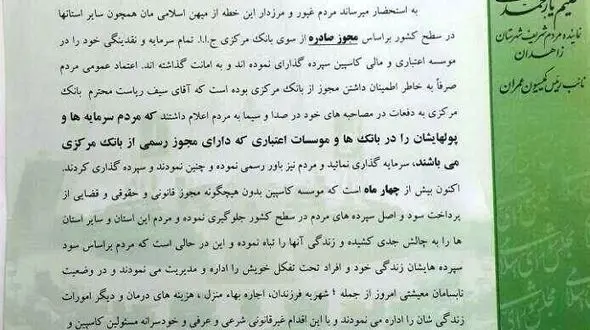 علیم یارمحمدی
نماینده مردم شریف شهرستان
زاهدان
نائب رئیس کمیسیون عمران
به استحضار میرساند مردم غیور و مرزدار این خطه از میهن اسلامی مان همچون سایر استانها
در سطح کشور براساس مجوز صادره از سوی بانک مرکزی ج.ا.ا. تمام سرمایه و نقدینگی خود را در
موسسه اعتباری و مالی کاسپین سپرده گذاری نموده اند و به امانت گذاشته اند. اعتماد عمومی مردم
صرفاً به خاطر اطمینان داشتن مجوز از بانک مرکزی بوده است که آقای سیف ریاست محترم بانک
مرکزی به دفعات در مصاحبه های خود در صدا و سیما به مردم اعلام داشتند که مردم سرمایه ها و
پولهایشان را در بانک ها و موسسات اعتباری که دارای مجوز رسمی از بانک مرکزی
می باشند، سرمایه گذاری نمائید و مردم نیز باور رسمی نموده و چنین نمودند و سپرده گذاری کردند.
اکنون بیش از چهار ماه است که موسسه کاسپین بدون هیچگونه مجوز قانونی و حقوقی و قضایی از
پرداخت سود و اصل سپرده های مردم در سطح کشور جلوگیری نموده و مردم این استان و سایر استان
ها را به چالش جدی کشیده و زندگی آنها را تباه نموده و این در حالی است که مردم براساس سود
سپرده هایشان زندگی خود و افراد تحت تفکل خویش را اداره و مدیریت می نمودند و در وضعیت
نابسامان معیشتی امروز از جمله ؛ شهریه فرزندان، اجاره بهاء منزل ، هزینه های درمان و دیگر امورات
زندگی شان را اداره می نمودند و با این اقدام غیرقانونی شرعی و عرفی و خودسرانه مسئولین کاسپین و
مجلس شورای اسلامی